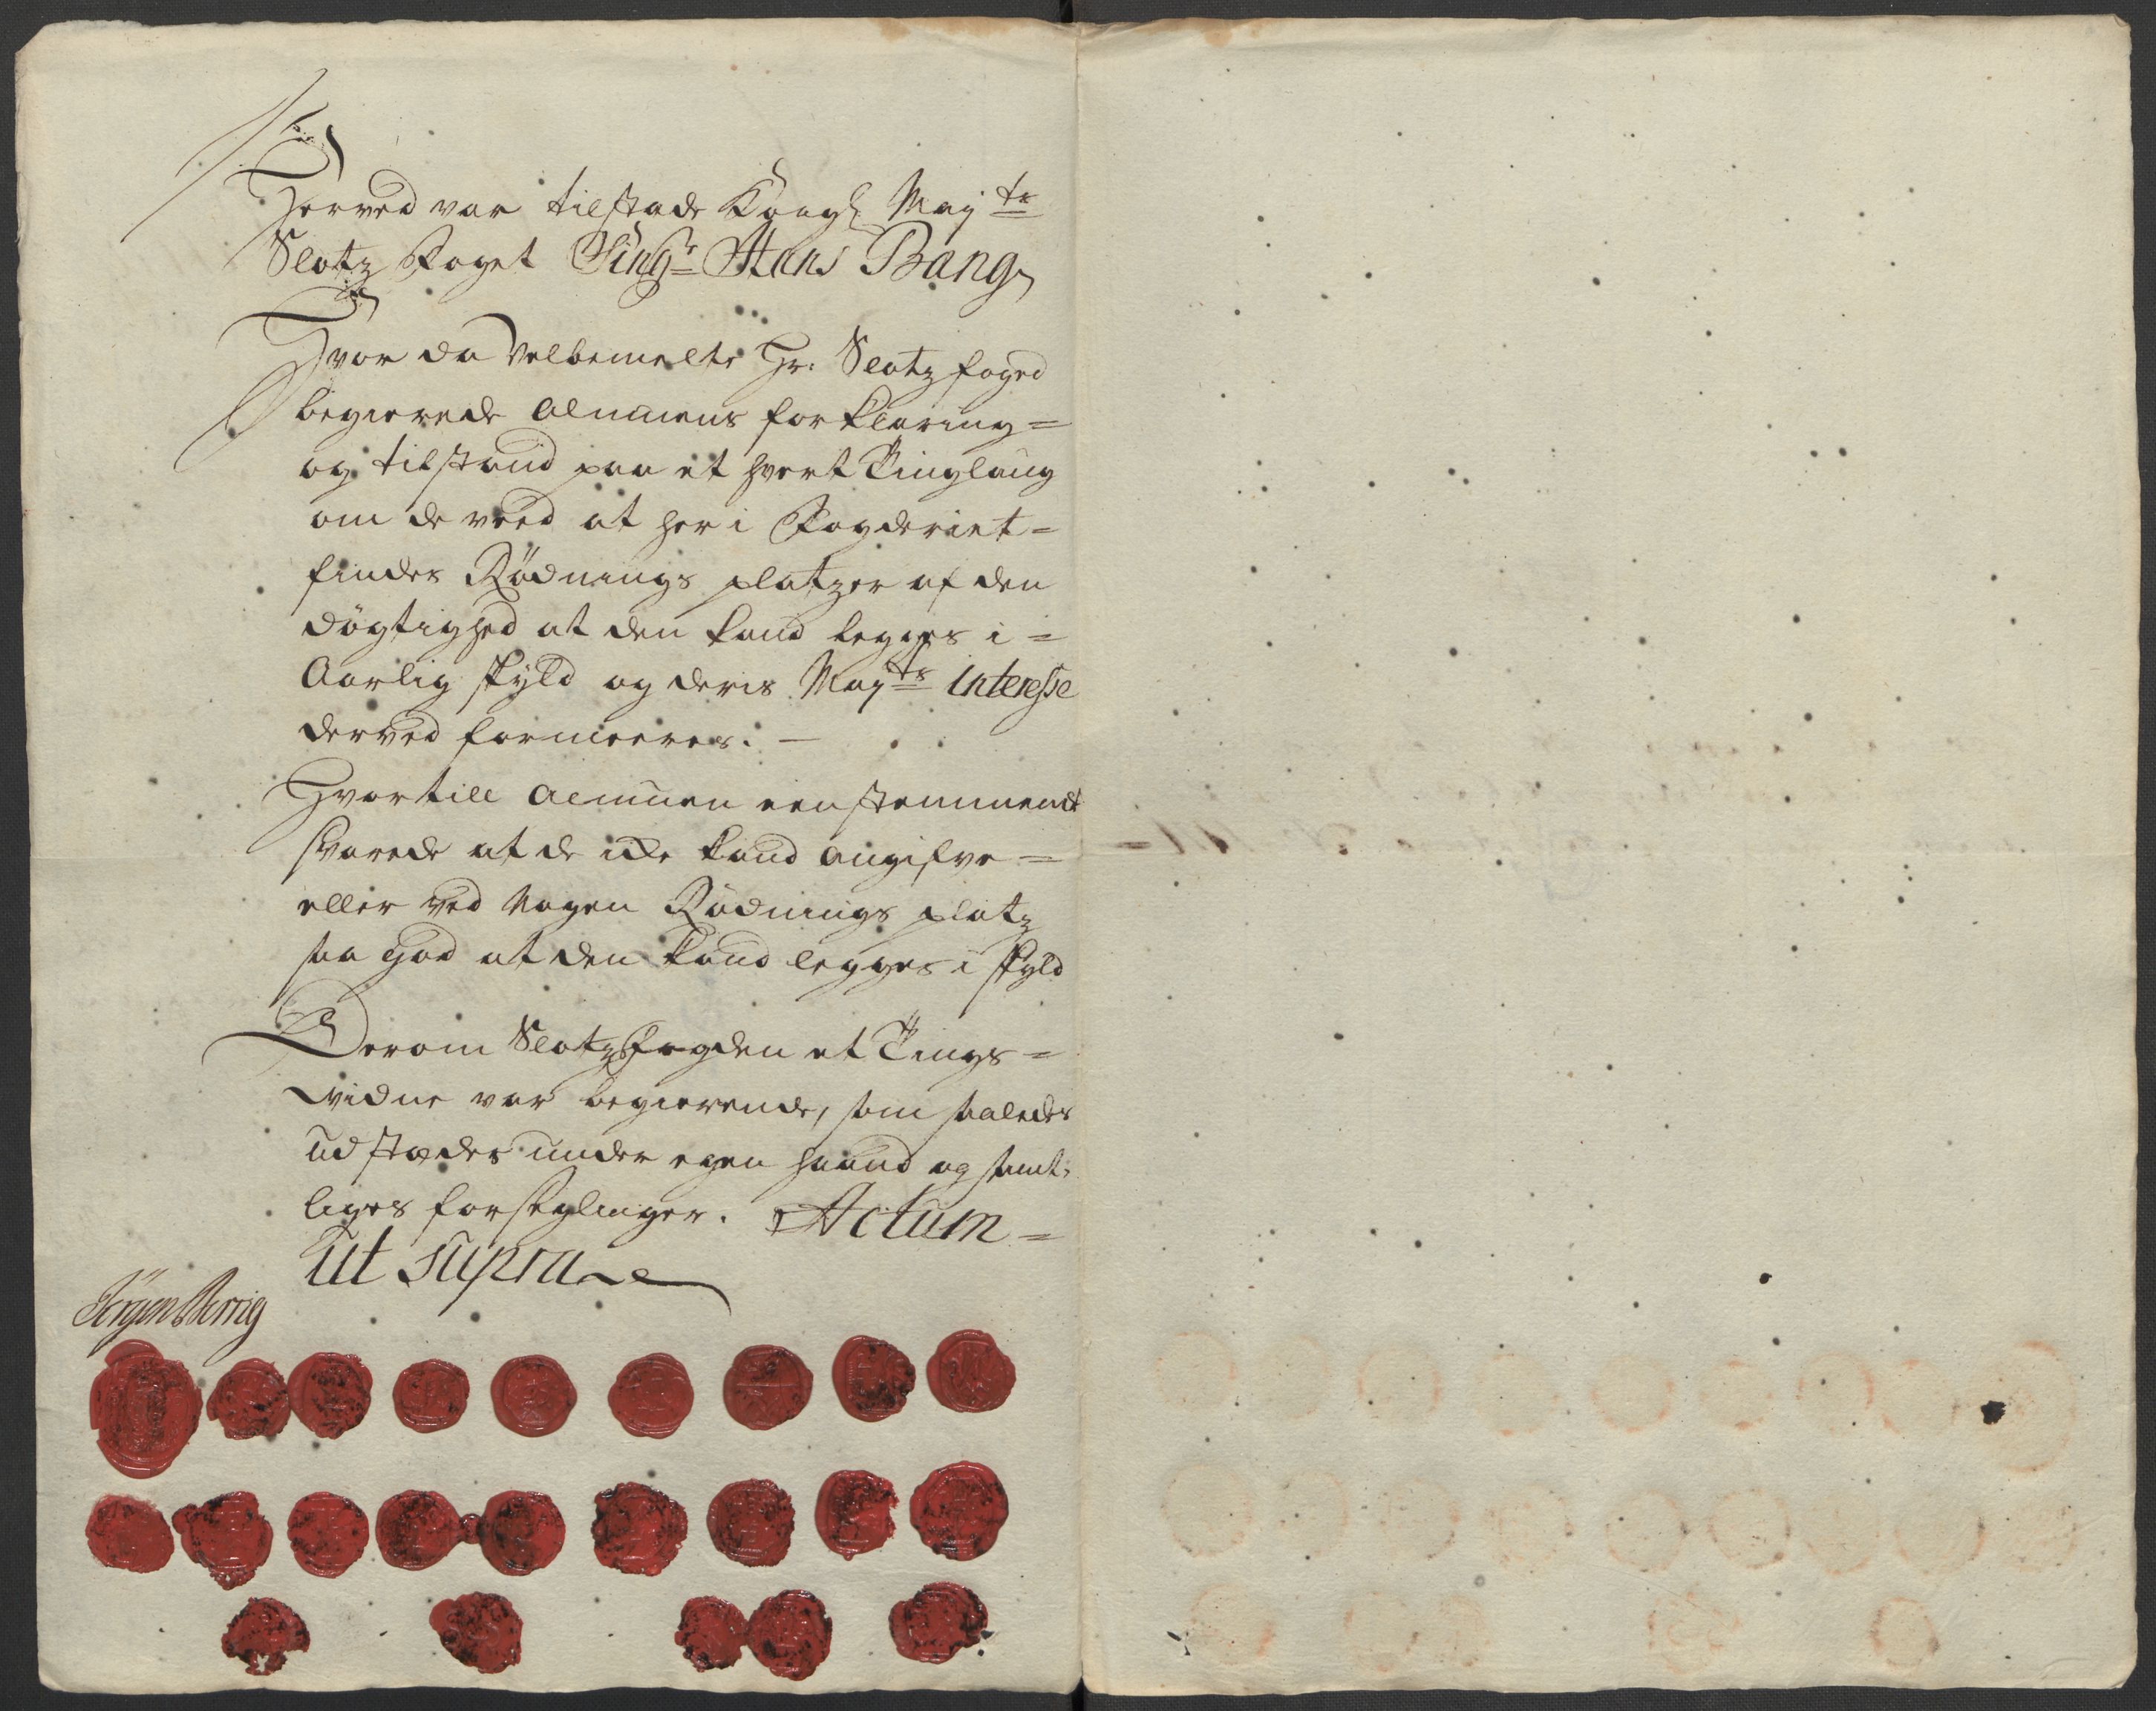 Herved var tilstæde Kongl May ts
Slotz Foget Sing.r Hans Bang
Hvor da velbemelte Hr: Slotz foged
begierede Almuens forklaring =
og tilstand paa et hvert Tinglaug
om de veed at her i Fogderiet =
findes Rödnings platzer af den
dögtighed at den kand legges i =
Aarlig skyld og deris May ts interesse
derved formeeres. —
Hvortill Almuen eenstemmendt
svarede at de icke kand angifve =
eller ved Nogen Rödnings platz
saa god at den kand legges i skyld
Derom Slotz Fogden et Tings =
vidne var begierende, som saaledes
udstædes under egen haand og samt=
liges forseglinger. Actum =
Ut supra